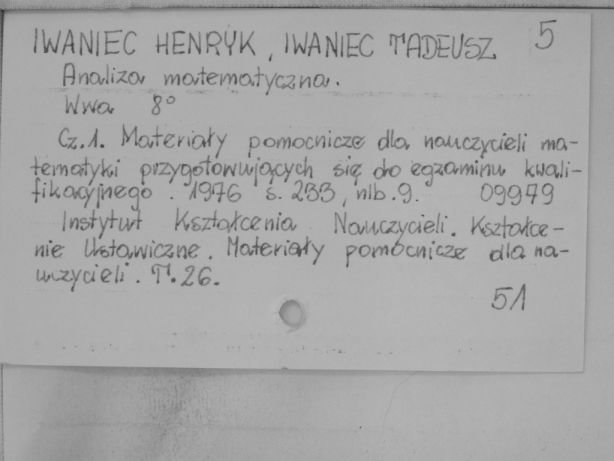 IWANIEC HENRYK, IWANIEC TADEUSZ 5
Analiza matematyczna.
Wwa 8°
Cz.1. Materiały pomocnicze dla nauczycieli ma-
tematyki przygotowujących się do egzaminu kwali-
fikacyjnego. 1976 s. 233, nlb. 9. 09979
Instytut Kształcenia Nauczycieli. Kształce-
nie Ustawiczne. Materiały pomocnicze dla na-
uczycieli. T. 26.
51